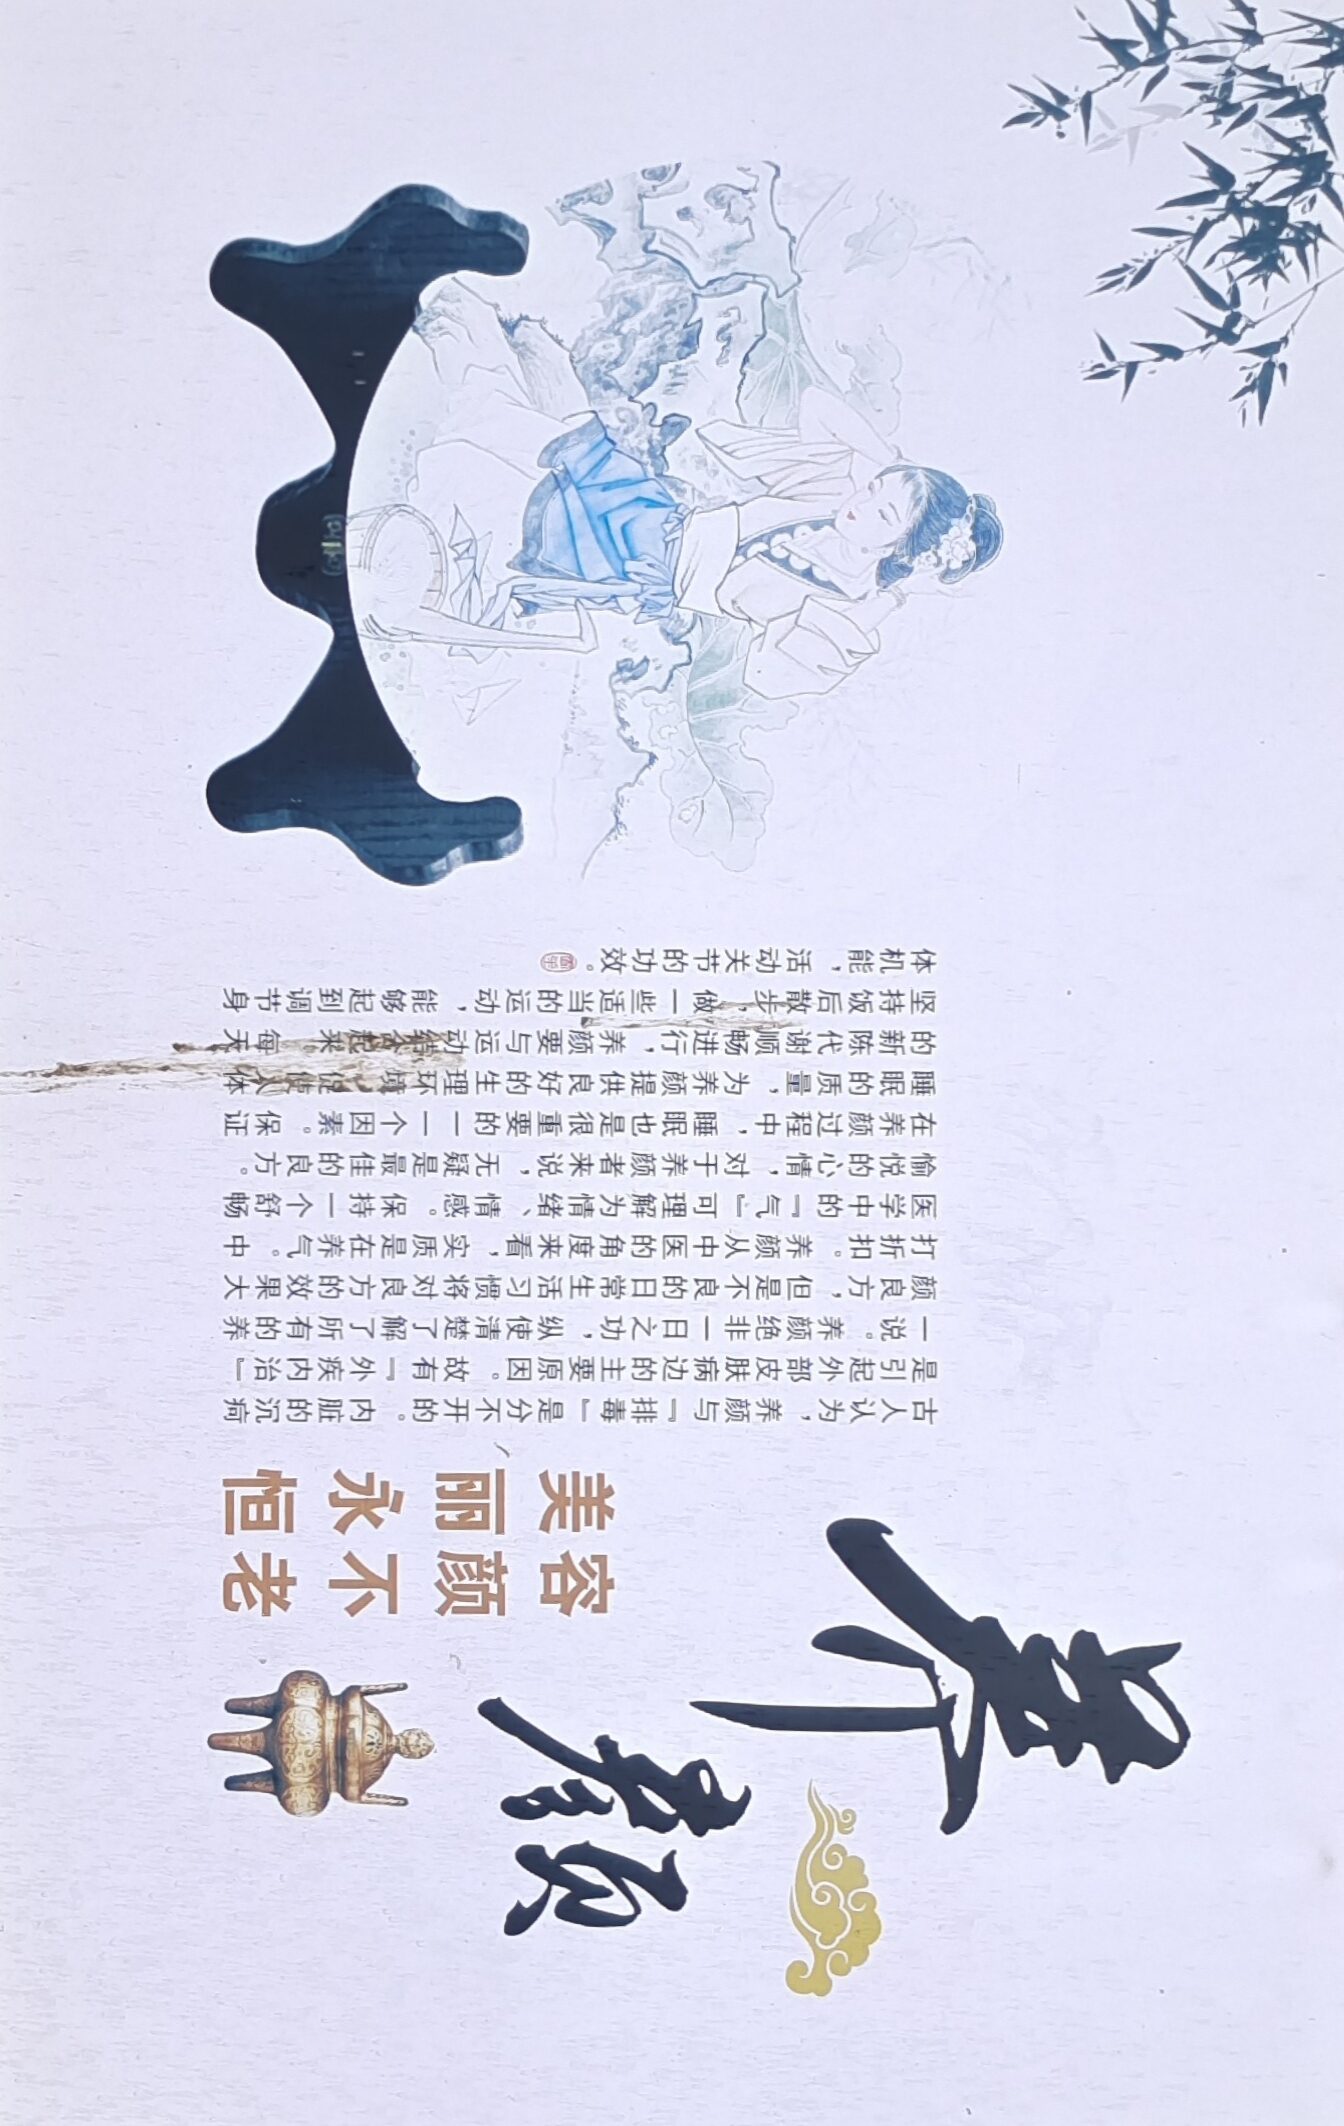 养颜
容颜不老
美丽永恒
古人认为，养颜与『排毒』是分不开的。内脏的沉疴
是引起外部皮肤病边的主要原因。故有『外疾内治』
一说。养颜绝非一日之功，纵使清楚了解了所有的养
颜良方，但是不良的日常生活习惯将对良方的效果大
打折扣。养颜从中医的角度来看，实质是在养气。中
医学中的『气』可理解为情绪、情感。保持一个舒畅
愉悦的心情，对于养颜者来说，无疑是最佳的良方。
在养颜过程中，睡眠也是很重要的一一个因素。保证
睡眠的质量，为养颜提供良好的生理环境 促使人体
的新陈代谢顺畅进行，养颜要与运动结合起来 每天
坚持饭后散步，做一些适当的运动，能够起到调节身
体机能，活动关节的功效。